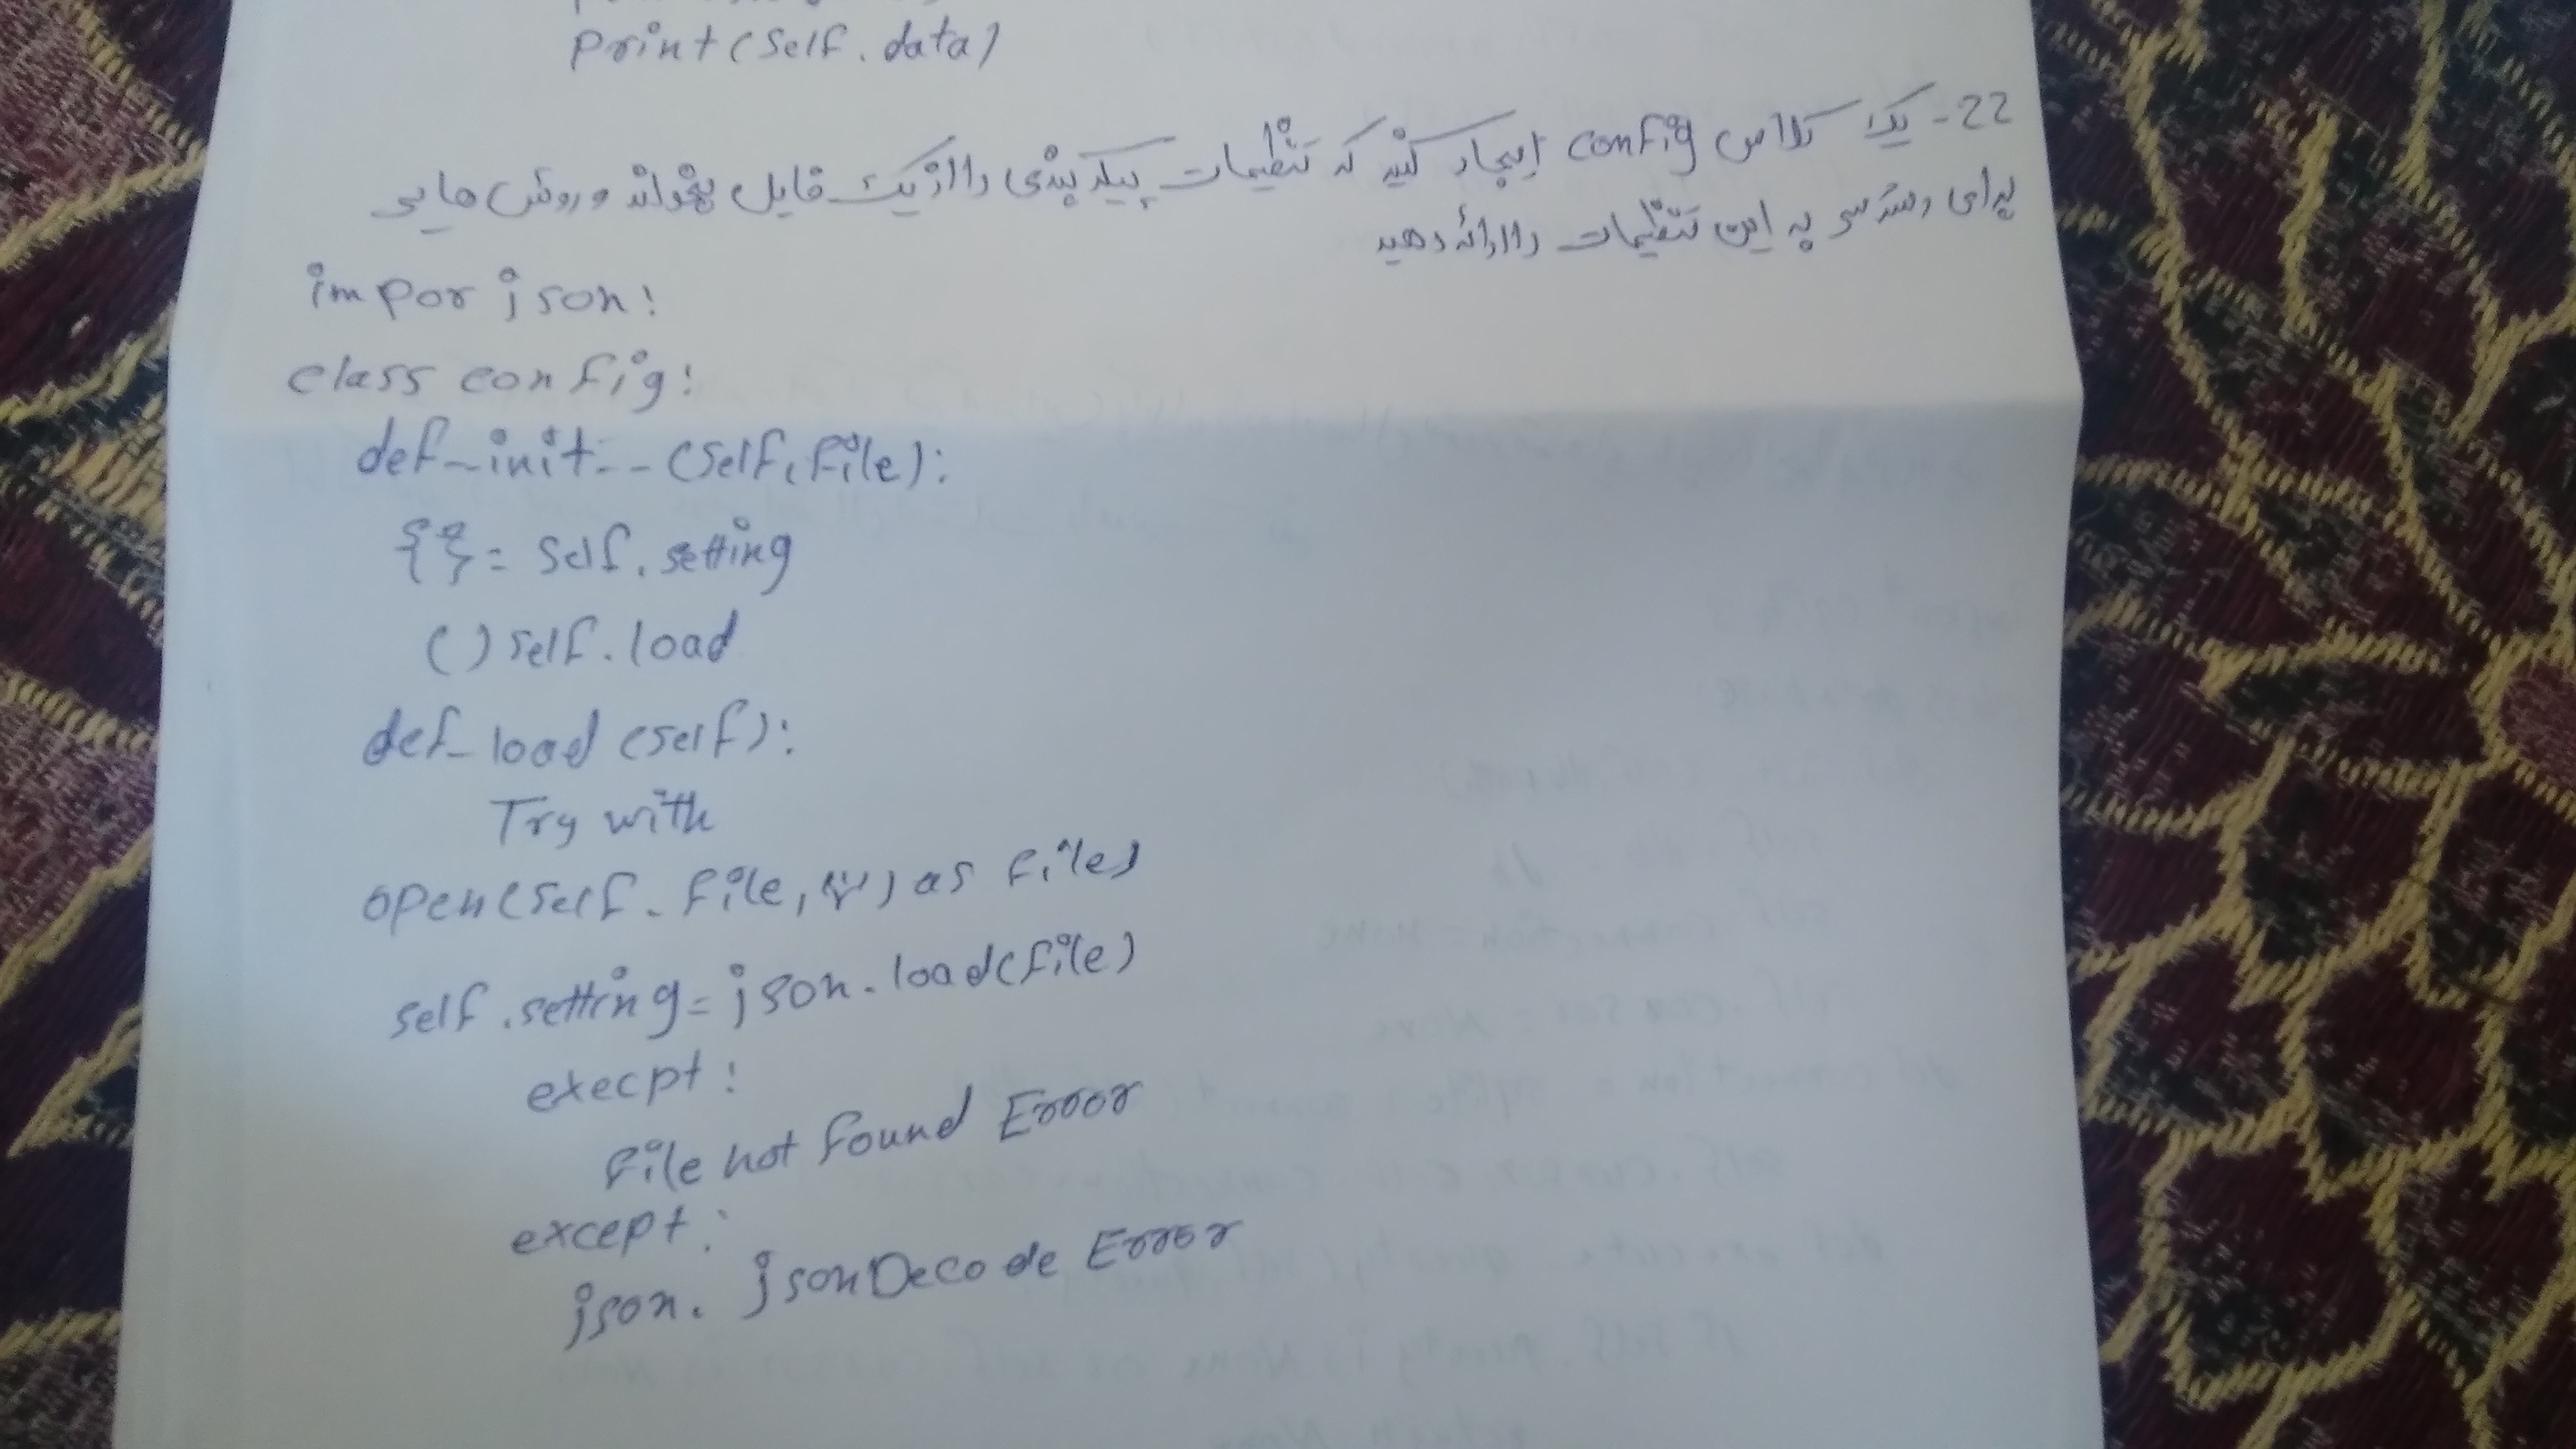 print(self.data)
22- یک کلاس config ایجاد کنید که تنظیمات پیکربندی را از یک فایل بخواند و روش هایی
برای دسترسی به این تنظیمات را ارائه دهید
impor json:
class config:
def-init--(self,file):
{} = self.setting
( ) self.load
def_load(self):
Try with
open(self-file,'r') as file)
self.setting=json.load(file)
execpt:
file not found Error
except:
json. jsonDecode Error